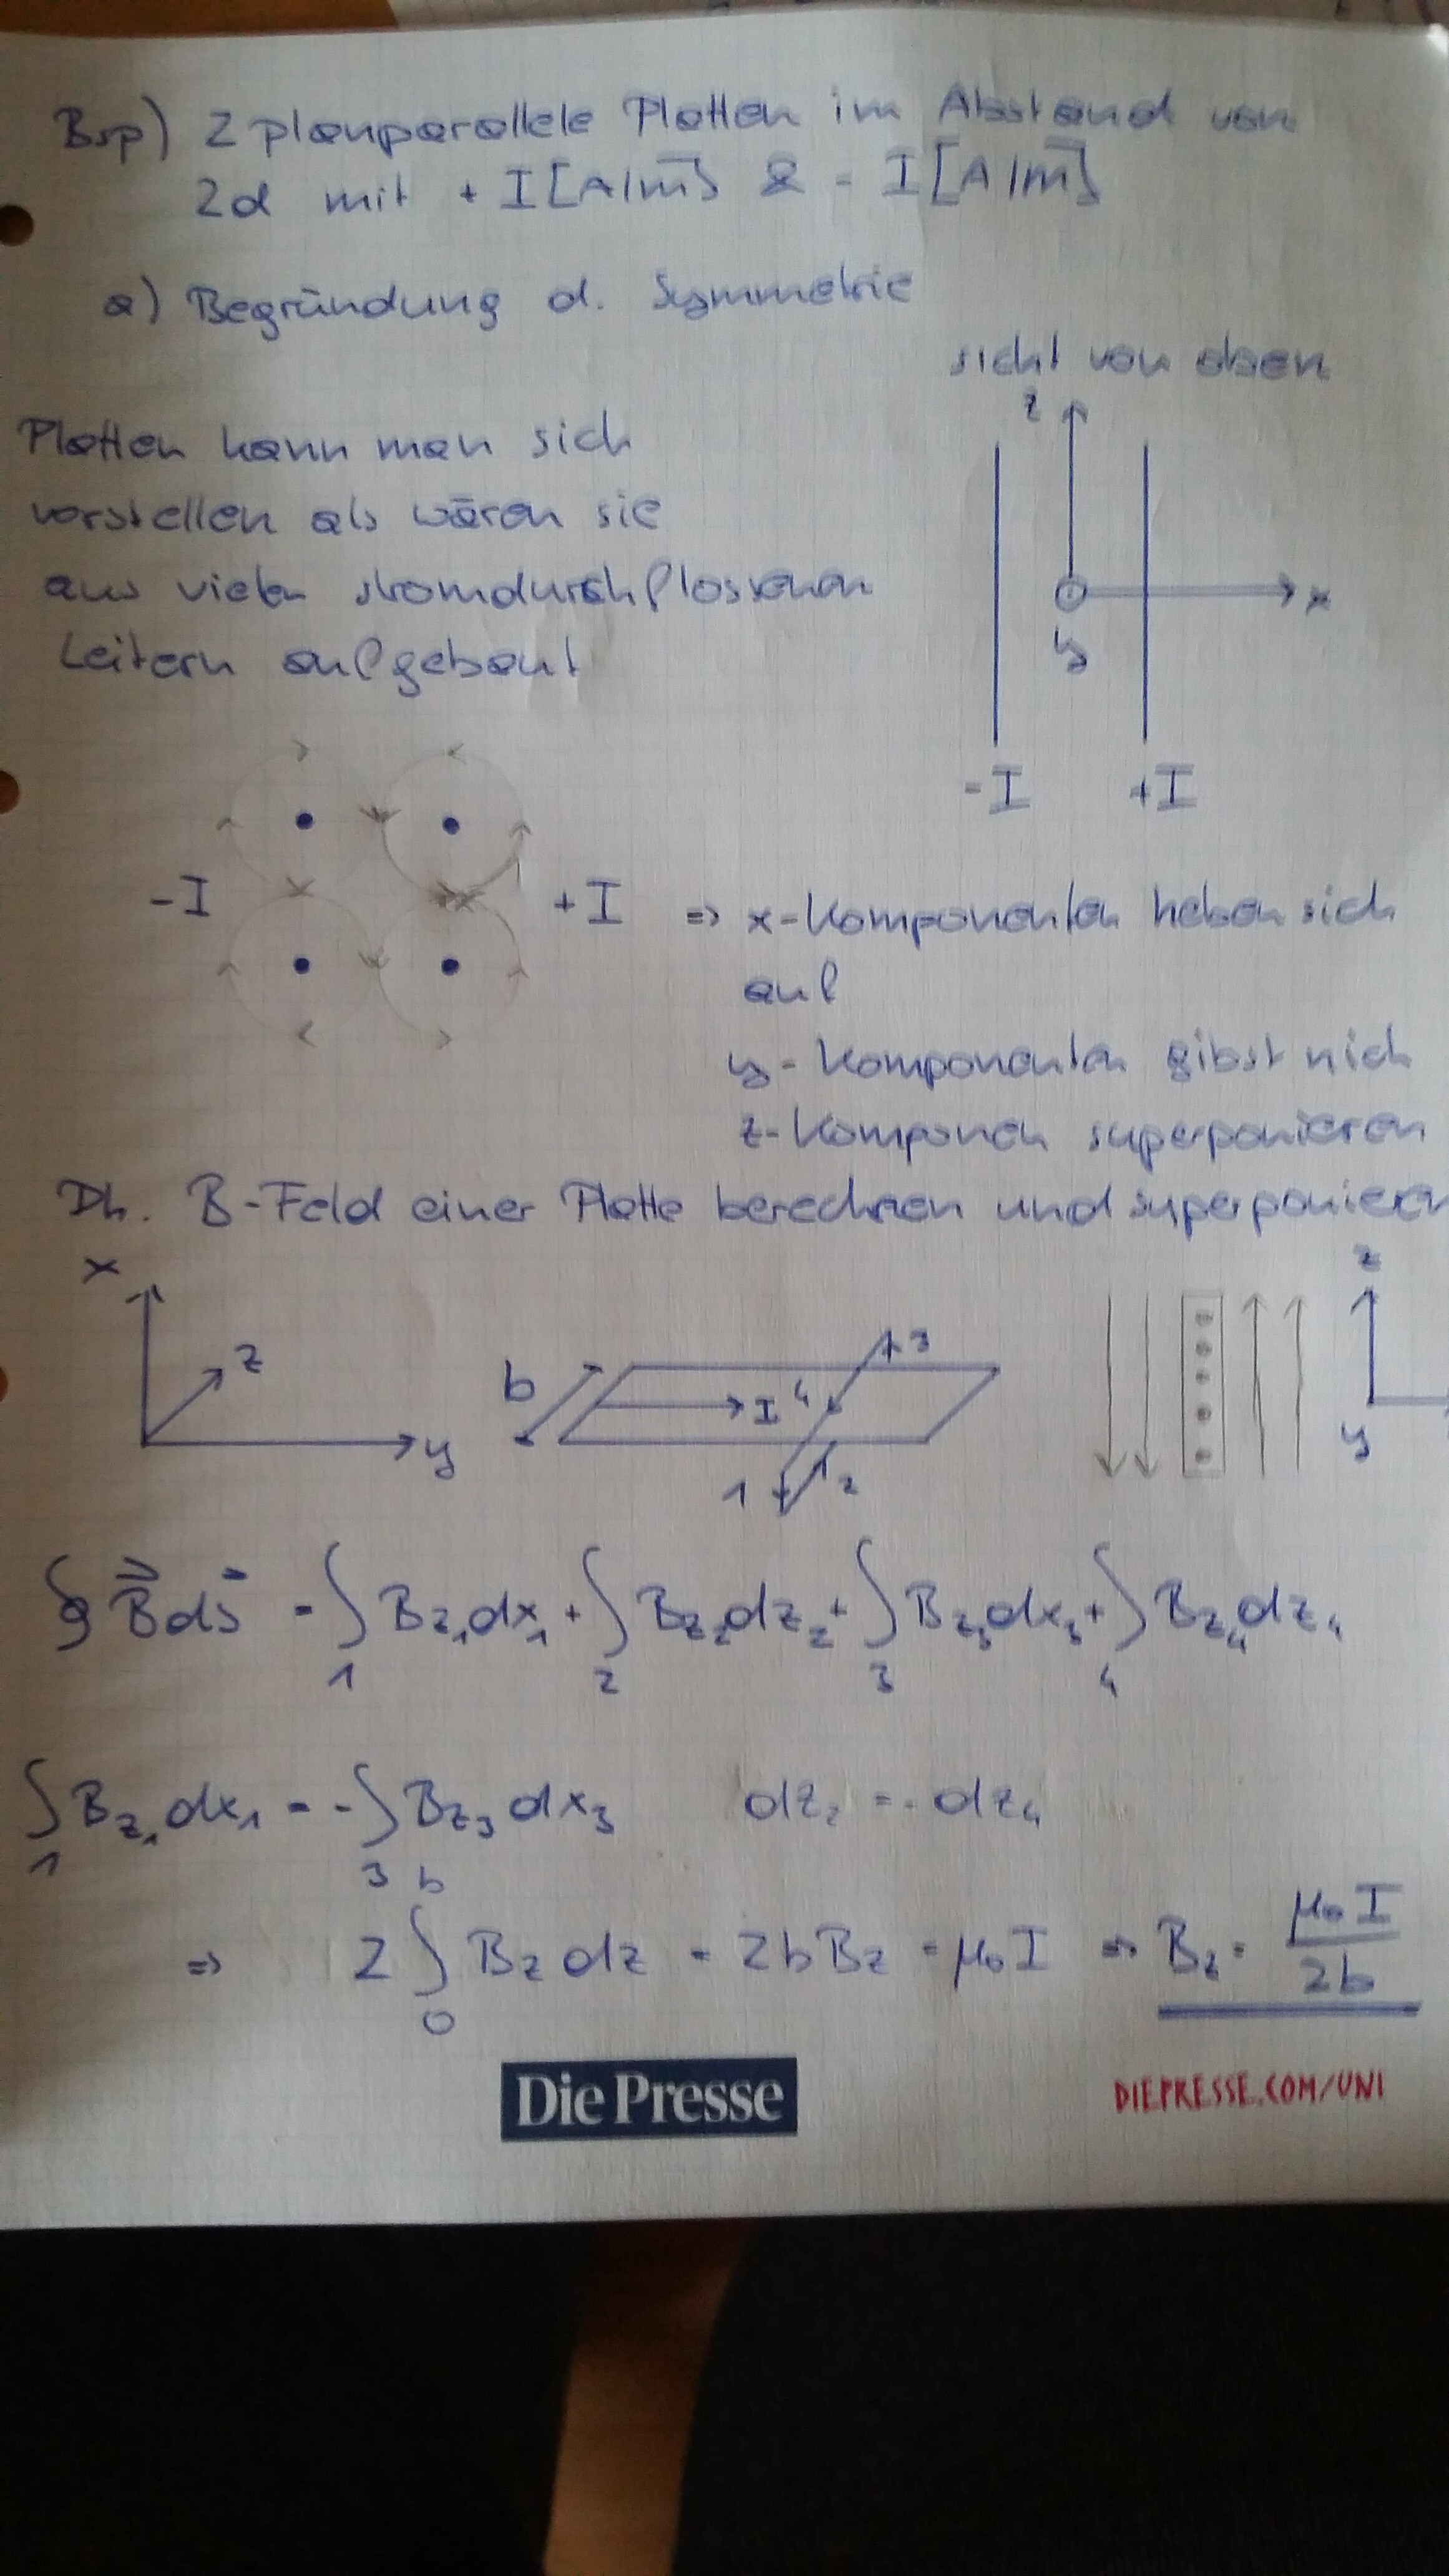 Bsp) 2 planparallele Platten im Abstand von
2d mit + I [A/m] & - I [A/m]
a) Begründung d. Symmetrie
sicht von oben
z
Platten kann man sich
vorstellen als wären sie
aus vielen stromdurchflossenen
Leitern aufgebaut
x
y
-I +I
-I +I => x-Komponenten heben sich
auf
y-Komponenten gibst nich
z-Komponen superponieren
Dh. B-Feld einer Platte berechnen und superponieren
x z y
b I 1 2 3 4
z y
∮ B⃗ds⃗ = ∫₁ Bz₁dx₁ + ∫₂ Bz₂dz₂ + ∫₃ Bz₃dx₃ + ∫₄ Bz₄dz₄
∫₁ Bz₁dx₁ = -∫₃ Bz₃dx₃ dz₂ = -dz₄
=> 2 ∫₀ᵇ Bz dz = 2bBz = μ₀I => Bz = μ₀I / 2b
Die Presse
DIEPRESSE.COM/UNI